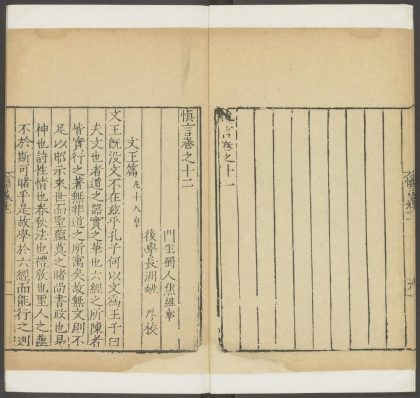 言卷之十一
愼言卷之十二
門生蜀人焦維章
後學長洲姚 校
文王篇 凡十八章
文王旣没文不在玆乎孔子何以文爲王子曰
夫文也者道之器實之華也六經之所陳者
皆實行之著無非道之所寓矣故無文則不
足以昭示來世而聖蘊莫之睹尚書政也易
神也詩性情也春秋法也禮敎也聖人之蘊
不於斯可睹乎是故學於六經而能行之則